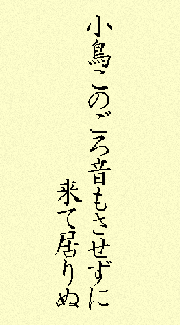 小鳥このごろ音もさせずに
来て居りぬ